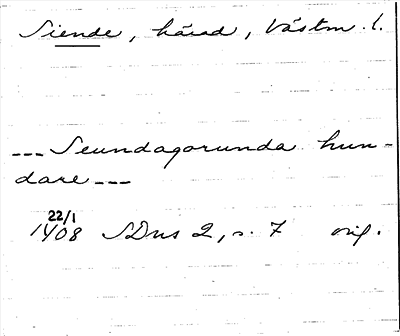 Siende, härad, Västm. l.
--- Seundagorunda hun-
dare ---
22/1
1408 SDns 2, s. 7 orig.